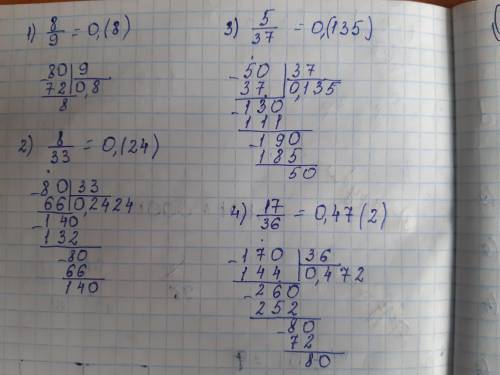 1) 8/9 = 0,(8)
-80 | 9
72 | 0,8
8
2) 8/33 = 0,(24)
-80 | 33
66 | 0,2424
-140
132
-80
66
140
3) 5/37 = 0,(135)
-50 | 37
37 | 0,135
-130
111
-190
185
50
4) 17/36 = 0,47(2)
-170 | 36
144 | 0,472
-260
252
-80
72
80